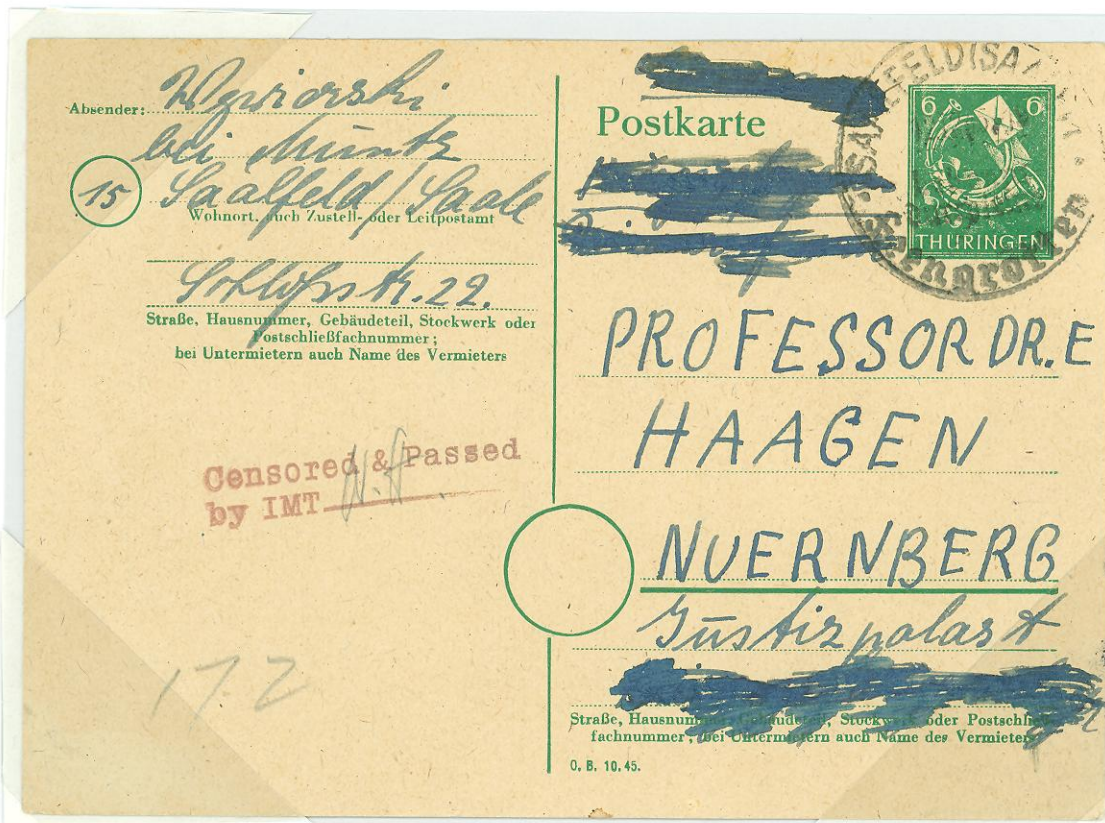 Absender: Wyviorski
bei Müntz
15 Saalfeld/Saale
Wohnort, auch Zustell- oder Leitpostamt
Schloßstr. 22.
Straße, Hausnummer, Gebäudeteil, Stockwerk oder
Postschließfachnummer;
bei Untermietern auch Name des Vermieters
Censored & Passed
by IMT
172
Postkarte
6 6
THÜRINGEN
SAALFELD (SAALE)
Feengrotten
PROFESSOR DR. E
HAAGEN
NUERNBERG
Justizpalast
Straße, Hausnummer, Gebäudeteil, Stockwerk oder Postschließ-
fachnummer; bei Untermietern auch Name des Vermieters
O. B. 10. 45.